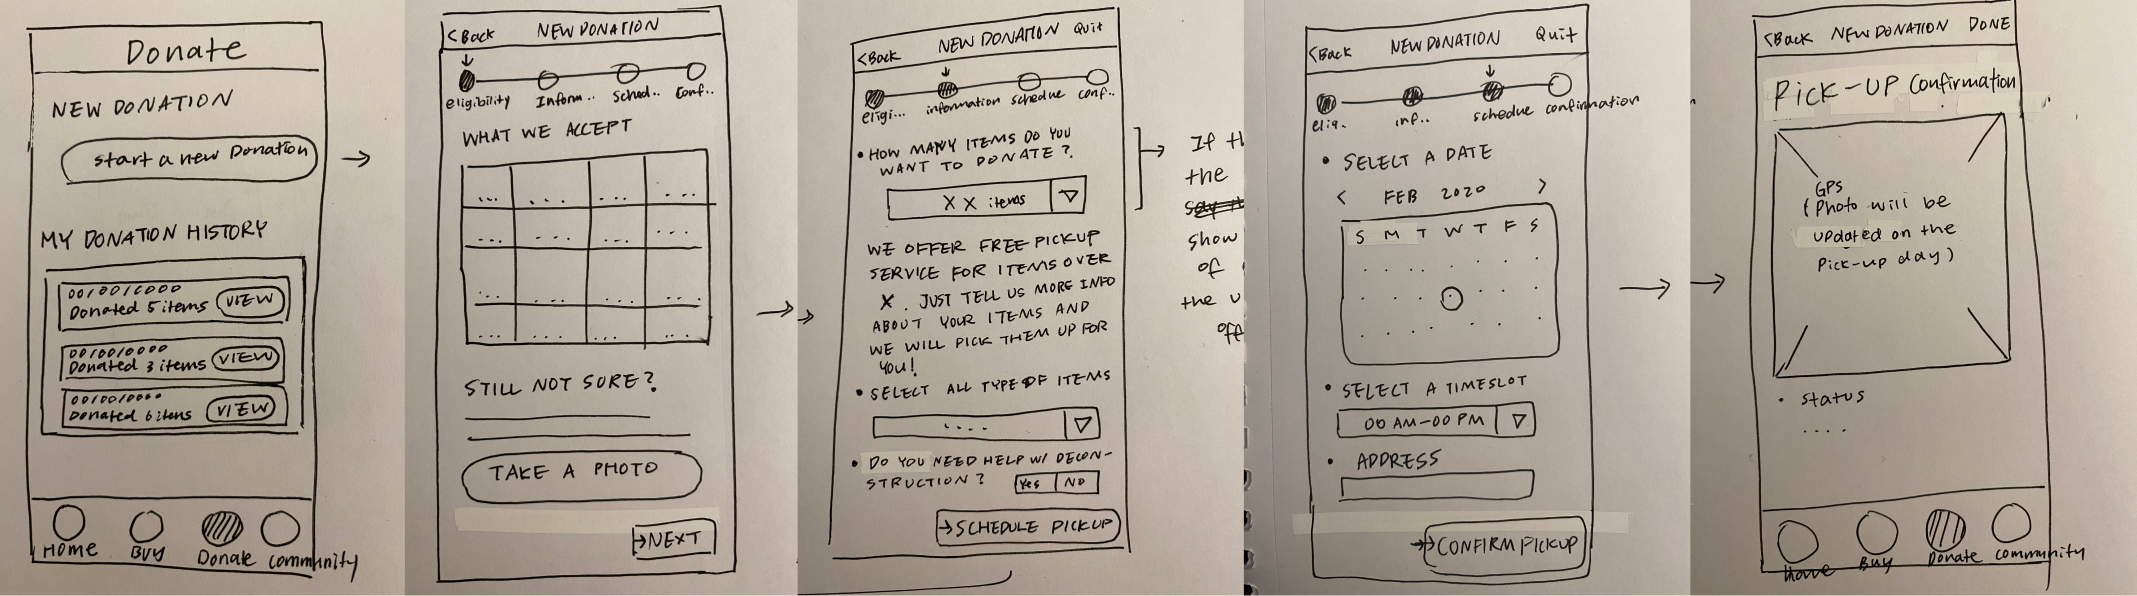 Donate
NEW DONATION
start a new Donation
MY DONATION HISTORY
00/00/0000
Donated 5 items
VIEW
00/00/0000
Donated 3 items
VIEW
00/00/0000
Donated 6 items
VIEW
Home
BUY
Donate
community
<Back NEW DONATION
eligibility Inform.. Sched.. Conf..
WHAT WE ACCEPT
STILL NOT SURE?
TAKE A PHOTO
NEXT
<Back NEW DONATION Quit
eligi... information schedue conf..
• HOW MANY ITEMS DO YOU
WANT TO DONATE?
XX items
WE OFFER FREE PICKUP
SERVICE FOR ITEMS OVER
X. JUST TELL US MORE INFO
ABOUT YOUR ITEMS AND
WE WILL PICK THEM UP FOR
YOU!
• SELECT ALL TYPE OF ITEMS
....
• DO YOU NEED HELP W/ DECON-
STRUCTION?
Yes NO
SCHEDULE PICKUP
If th
the
show
of
the u
off
<Back NEW DONATION Quit
elig.. inf.. schedue confirmation
• SELECT A DATE
< FEB 2020 >
S M T W T F S
• SELECT A TIMESLOT
00 AM-00 PM
• ADDRESS
CONFIRM PICKUP
<Back NEW DONATION DONE
PICK-UP Confirmation
GPS
(Photo will be
updated on the
Pick-up day)
• status
....
Home
Buy
Donate
community